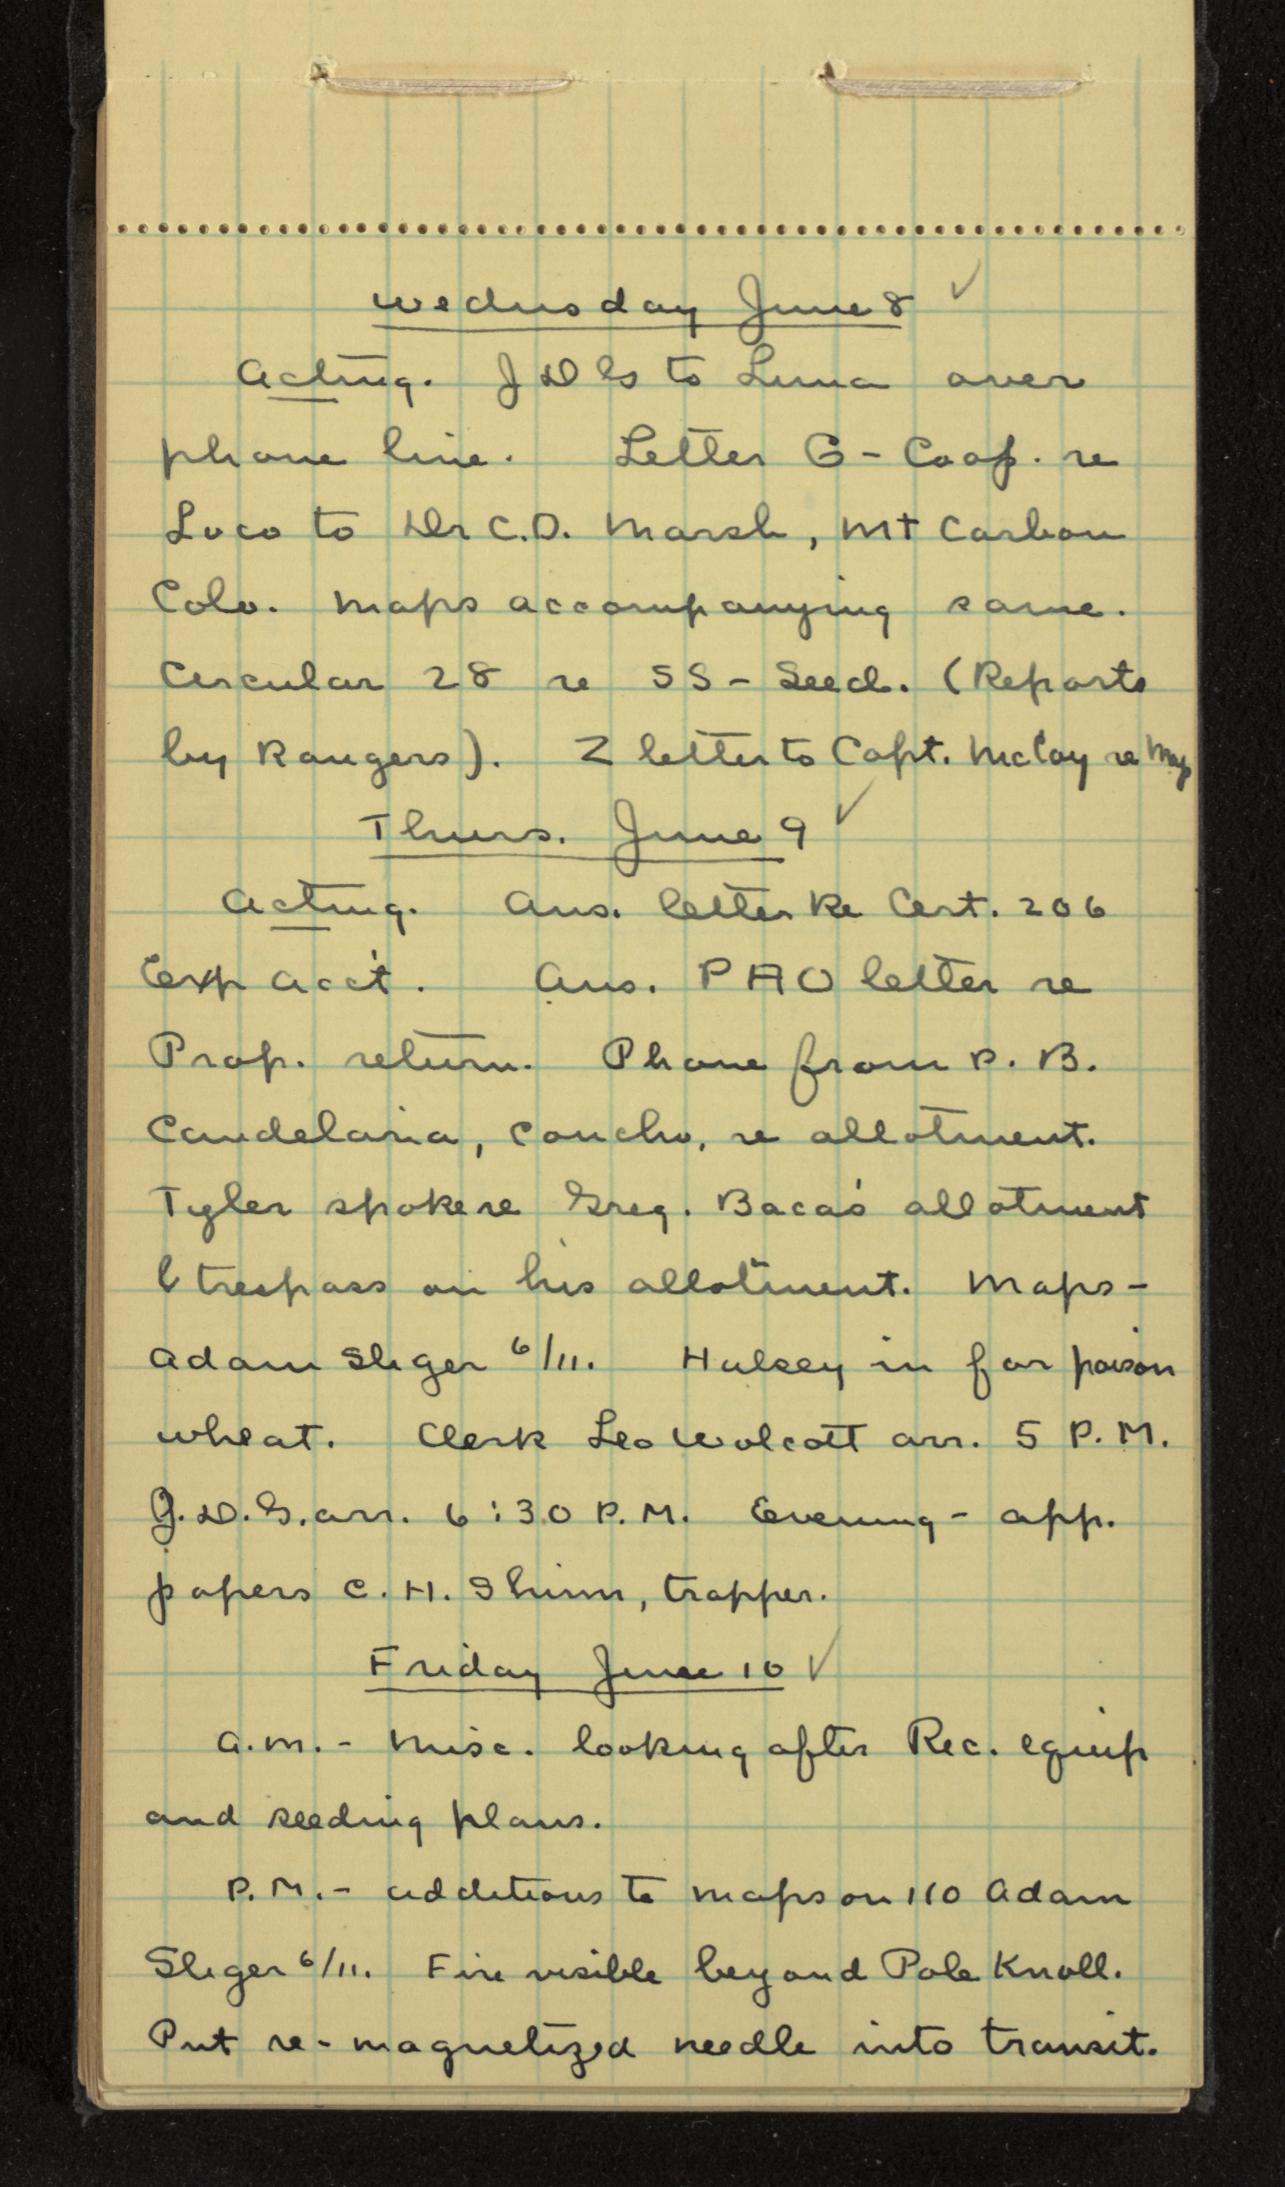 Wednesday June 8 ✓
Acting. JDG to Luna over
phone line. Letter G-Coop. re
Loco to Dr C.D. Marsh, Mt Carbon
Colo. Maps accompanying same.
Circular 28 re SS-Seed. (Reports
by Rangers). 2 letter to Capt. McCoy re Map
Thurs. June 9 ✓
Acting. Ans. letter Re Cert. 206
Exp acc't. Ans. PAO letter re
Prop. return. Phone from P. B.
Candelaria, Concho, re allotment.
Tyler spoke re Greg. Baca's allotment
& trespass on his allotment. Maps-
Adam Sliger 6/11. Hulsey in for poison
wheat. Clerk Leo Wolcott arr. 5 P.M.
J.D.G. arr. 6:30 P.M. Evening - app.
papers C. H. Shinn, trapper.
Friday June 10 ✓
A.M. - Misc. looking after Rec. equip
and seeding plans.
P.M. - additions to maps on 110 Adam
Sliger 6/11. Fire visible beyond Pole Knoll.
Put re-magnetized needle into transit.